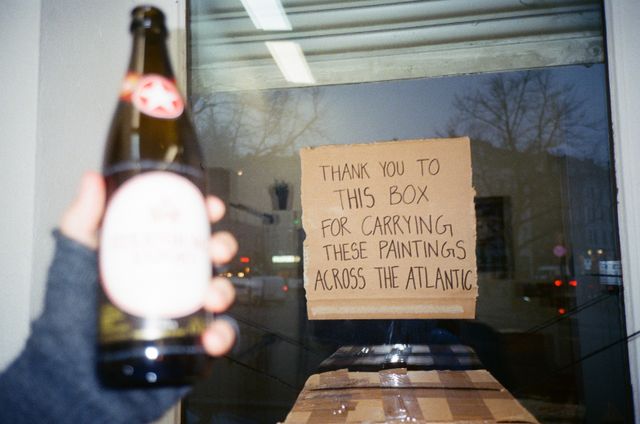 THANK YOU TO
THIS BOX
FOR CARRYING
THESE PAINTINGS
ACROSS THE ATLANTIC